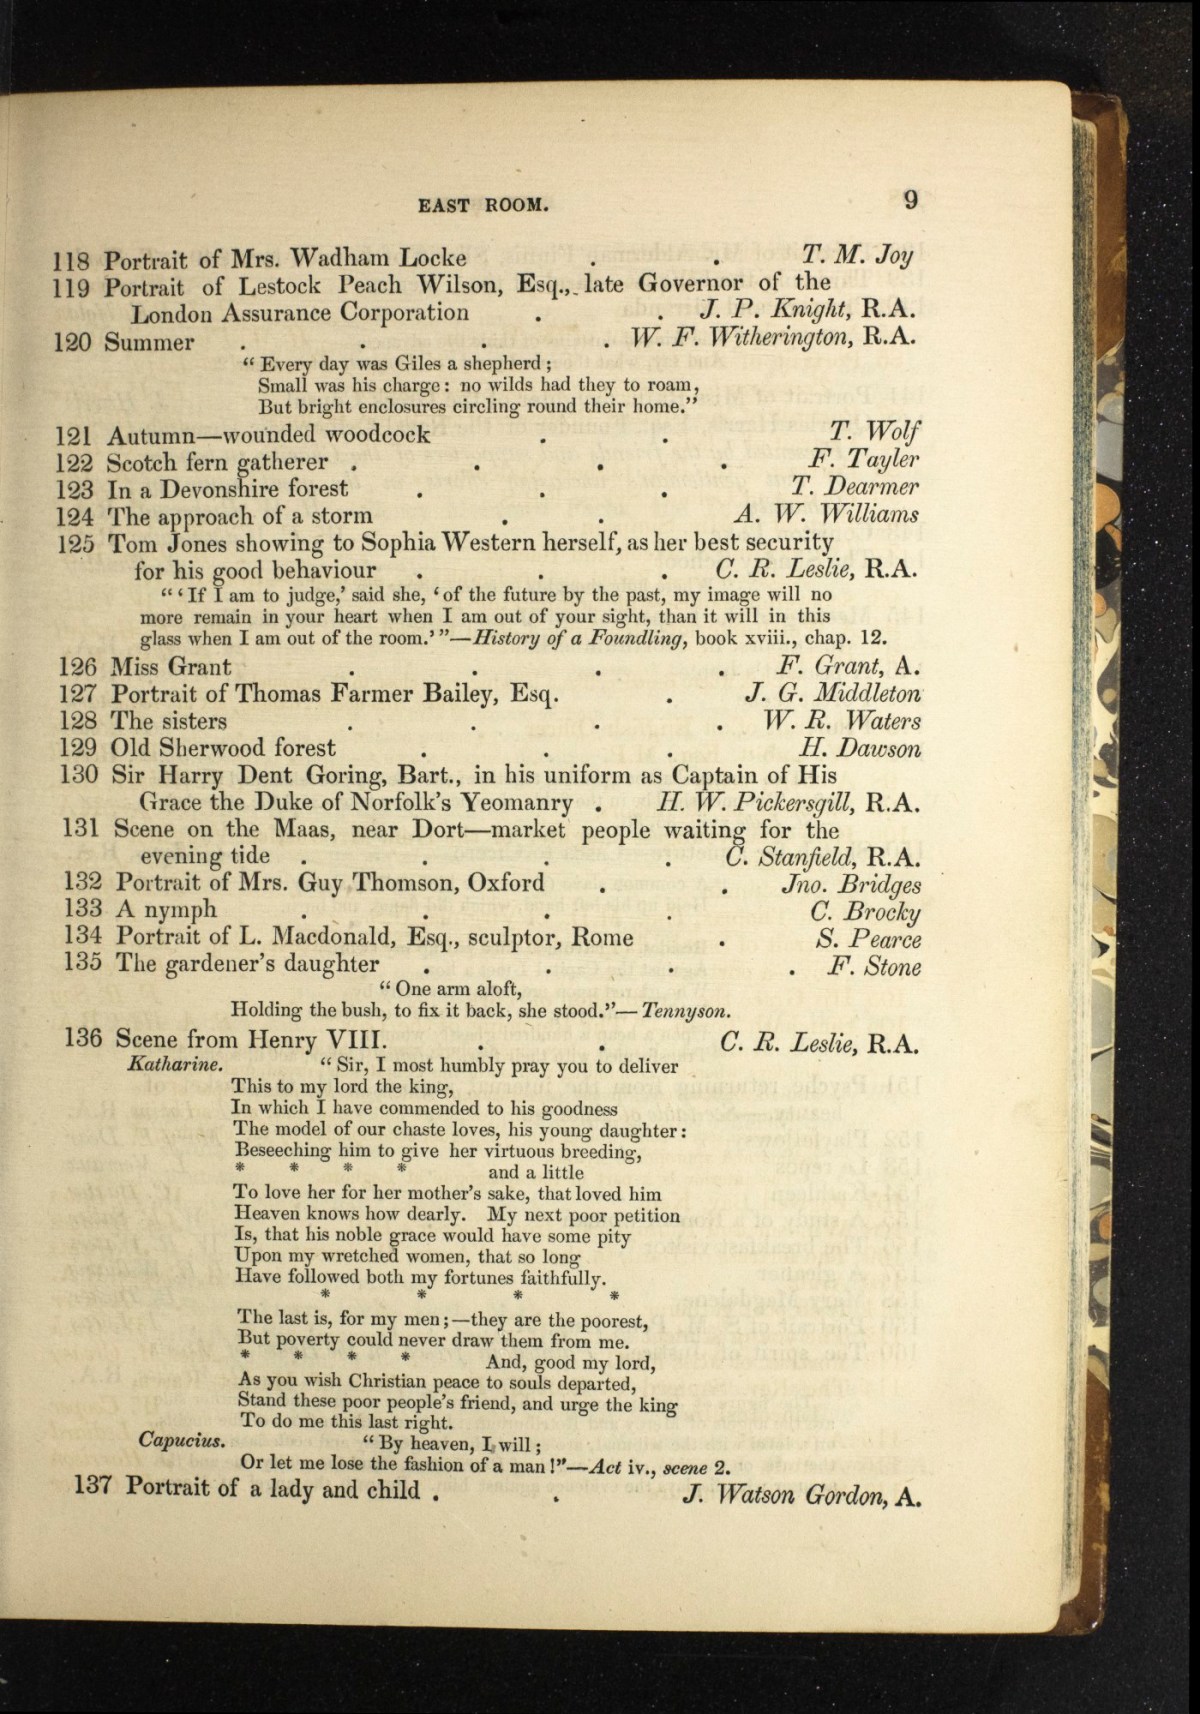 EAST ROOM. 9
118 Portrait of Mrs. Wadham Locke . . T. M. Joy
119 Portrait of Lestock Peach Wilson, Esq., late Governor of the
London Assurance Corporation . . J. P. Knight, R.A.
120 Summer . . . . W. F. Witherington, R.A.
“Every day was Giles a shepherd;
Small was his charge: no wilds had they to roam,
But bright enclosures circling round their home.”
121 Autumn—wounded woodcock . . T. Wolf
122 Scotch fern gatherer . . . . F. Tayler
123 In a Devonshire forest . . . T. Dearmer
124 The approach of a storm . . A. W. Williams
125 Tom Jones showing to Sophia Western herself, as her best security
for his good behaviour . . . C. R. Leslie, R.A.
“‘If I am to judge,’ said she, ‘of the future by the past, my image will no
more remain in your heart when I am out of your sight, than it will in this
glass when I am out of the room.’”—History of a Foundling, book xviii., chap. 12.
126 Miss Grant . . . . F. Grant, A.
127 Portrait of Thomas Farmer Bailey, Esq. . J. G. Middleton
128 The sisters . . . . W. R. Waters
129 Old Sherwood forest . . . H. Dawson
130 Sir Harry Dent Goring, Bart., in his uniform as Captain of His
Grace the Duke of Norfolk’s Yeomanry . H. W. Pickersgill, R.A.
131 Scene on the Maas, near Dort—market people waiting for the
evening tide . . . . C. Stanfield, R.A.
132 Portrait of Mrs. Guy Thomson, Oxford . . Jno. Bridges
133 A nymph . . . . C. Brocky
134 Portrait of L. Macdonald, Esq., sculptor, Rome . S. Pearce
135 The gardener’s daughter . . . . F. Stone
“One arm aloft,
Holding the bush, to fix it back, she stood.”—Tennyson.
136 Scene from Henry VIII. . . C. R. Leslie, R.A.
Katharine. “Sir, I most humbly pray you to deliver
This to my lord the king,
In which I have commended to his goodness
The model of our chaste loves, his young daughter:
Beseeching him to give her virtuous breeding,
* * * * and a little
To love her for her mother’s sake, that loved him
Heaven knows how dearly. My next poor petition
Is, that his noble grace would have some pity
Upon my wretched women, that so long
Have followed both my fortunes faithfully.
* * * *
The last is, for my men;—they are the poorest,
But poverty could never draw them from me.
* * * * And, good my lord,
As you wish Christian peace to souls departed,
Stand these poor people’s friend, and urge the king
To do me this last right.
Capucius. “By heaven, I will;
Or let me lose the fashion of a man!”—Act iv., scene 2.
137 Portrait of a lady and child . . J. Watson Gordon, A.